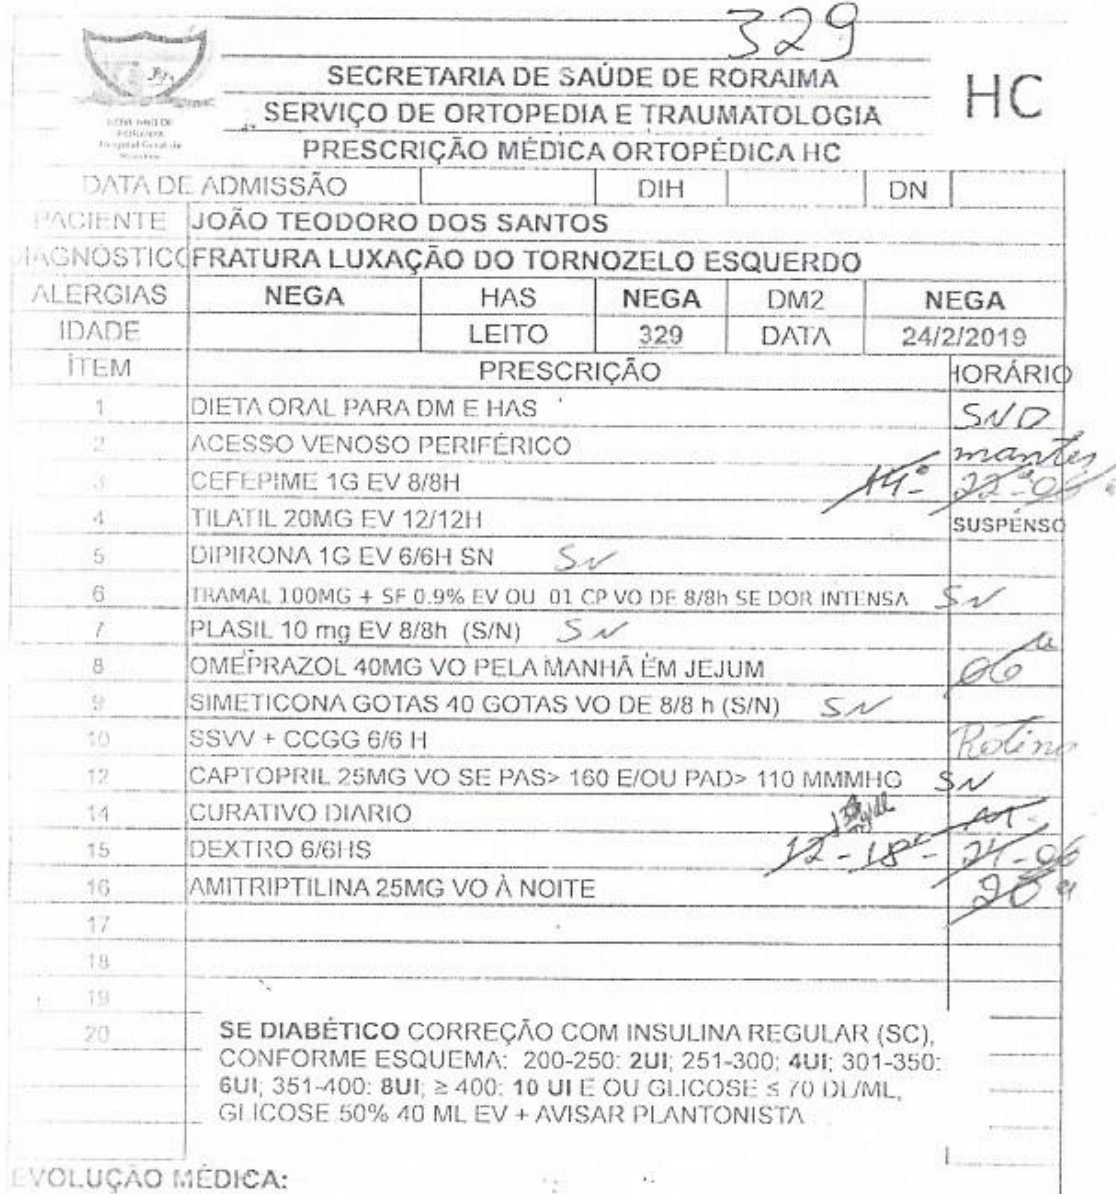 329
SECRETARIA DE SAÚDE DE RORAIMA
HC
SERVIÇO DE ORTOPEDIA E TRAUMATOLOGIA
PRESCRIÇÃO MÉDICA ORTOPÉDICA HC
DATA DE ADMISSÃO DIH DN
PACIENTE JOÃO TEODORO DOS SANTOS
DIAGNÓSTICO FRATURA LUXAÇÃO DO TORNOZELO ESQUERDO
ALERGIAS NEGA HAS NEGA DM2 NEGA
IDADE LEITO 329 DATA 24/2/2019
ÍTEM PRESCRIÇÃO HORÁRIO
1 DIETA ORAL PARA DM E HAS SND
2 ACESSO VENOSO PERIFÉRICO manter
3 CEFEPIME 1G EV 8/8H 14- 22- 06
4 TILATIL 20MG EV 12/12H SUSPENSO
5 DIPIRONA 1G EV 6/6H SN SN
6 TRAMAL 100MG + SF 0.9% EV OU 01 CP VO DE 8/8h SE DOR INTENSA SN
7 PLASIL 10 mg EV 8/8h (S/N) SN
8 OMEPRAZOL 40MG VO PELA MANHÃ EM JEJUM 06
9 SIMETICONA GOTAS 40 GOTAS VO DE 8/8 h (S/N) SN
10 SSVV + CCGG 6/6 H Rotina
12 CAPTOPRIL 25MG VO SE PAS> 160 E/OU PAD> 110 MMMHG SN
14 CURATIVO DIARIO
15 DEXTRO 6/6HS 12 - 18 - 24 - 06
16 AMITRIPTILINA 25MG VO À NOITE 20
17
18
19
20 SE DIABÉTICO CORREÇÃO COM INSULINA REGULAR (SC),
CONFORME ESQUEMA: 200-250: 2UI; 251-300; 4UI; 301-350:
6UI; 351-400: 8UI; ≥ 400: 10 UI E OU GLICOSE ≤ 70 DL/ML,
GLICOSE 50% 40 ML EV + AVISAR PLANTONISTA
EVOLUÇÃO MÉDICA: